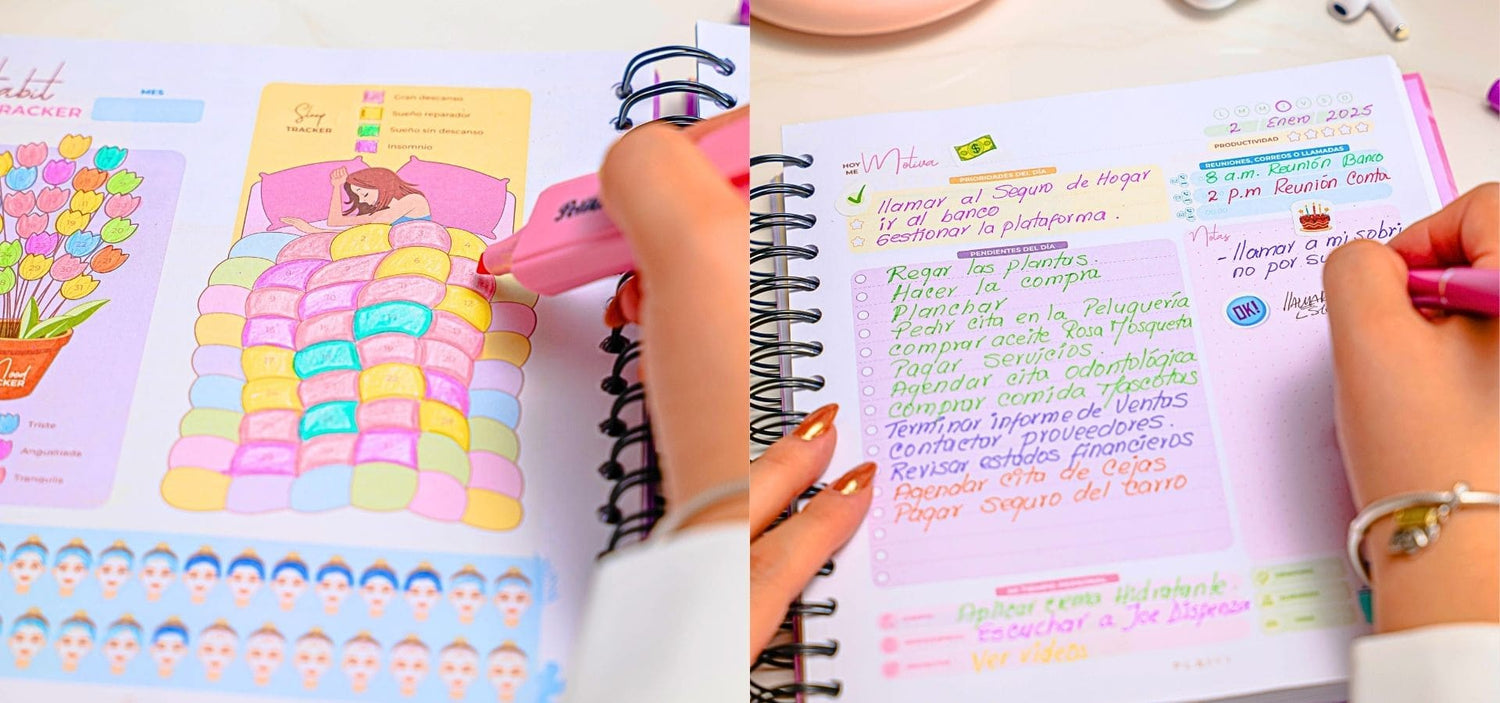 abit
TRACKER
MES
Sleep
TRACKER
Gran descanso
Sueño reparador
Sueño sin descanso
Insomnio
Triste
Angustiada
Tranquila
HOY
ME Motiva
L M M V S D
2 Enero 2025
PRODUCTIVIDAD
PRIORIDADES DEL DÍA
llamar al Seguro de Hogar
ir al banco
Gestionar la plataforma.
REUNIONES, CORREOS O LLAMADAS
8 a.m. Reunión Banco
2 p.m Reunión Conta
PENDIENTES DEL DÍA
Regar las plantas.
Hacer la compra
Planchar
Pedir cita en la Peluquería
comprar aceite Rosa Mosqueta
Pagar servicios
Agendar cita odontológica
comprar comida Mascotas
Terminar informe de Ventas
contactar proveedores.
Revisar estados financieros
Agendar cita de Cejas
Pagar seguro del carro
Notas
- llamar a mi sobri
no por su
OK!
Aplicar crema Hidratante.
Escuchar a Joe Dispenza
Ver videos